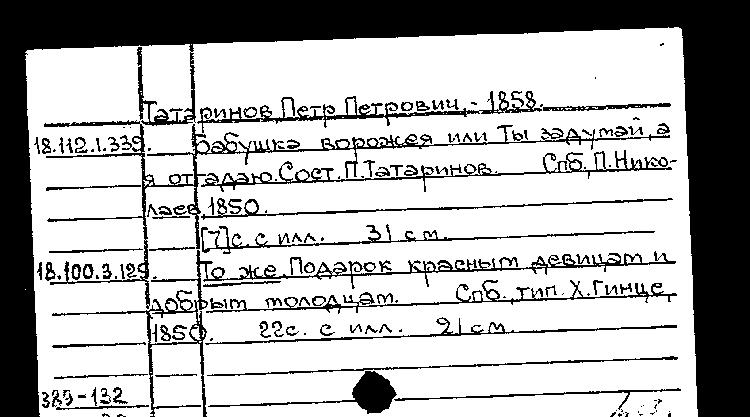 Татаринов, Петр Петрович, - 1858.
18.112.1.339. Бабушка ворожея или Ты задумай, а
я отгадаю. Сост. П. Татаринов. Спб, П. Нико-
лаев, 1850.
[7]с. с илл. 31 см.
18.100.3.129. То же. Подарок красным девицам и
добрым молодцам. Спб., тип. Х. Гинце,
1850. 22с. с илл. 21 см.
385-132